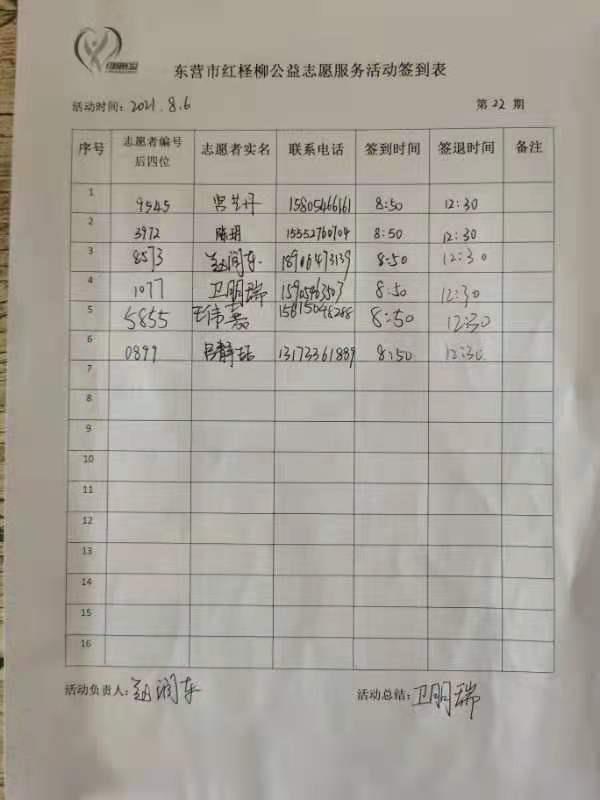 东营市红柽柳公益志愿服务活动签到表
活动时间: 2021.8.6 第 22 期
序号 志愿者编号后四位 志愿者实名 联系电话 签到时间 签退时间 备注
1 9545 15805466161 8:50 12:30
2 3972 陈玥 15352760704 8:50 12:30
3 8573 赵润东 18906473139 8:50 12:30
4 1077 卫朋瑞 15905463503 8:50 12:30
5 5855 王伟嘉 8:50 12:30
6 0899 13173361889 8:50 12:30
7
8
9
10
11
12
13
14
15
16
活动负责人: 赵润东 活动总结: 卫朋瑞